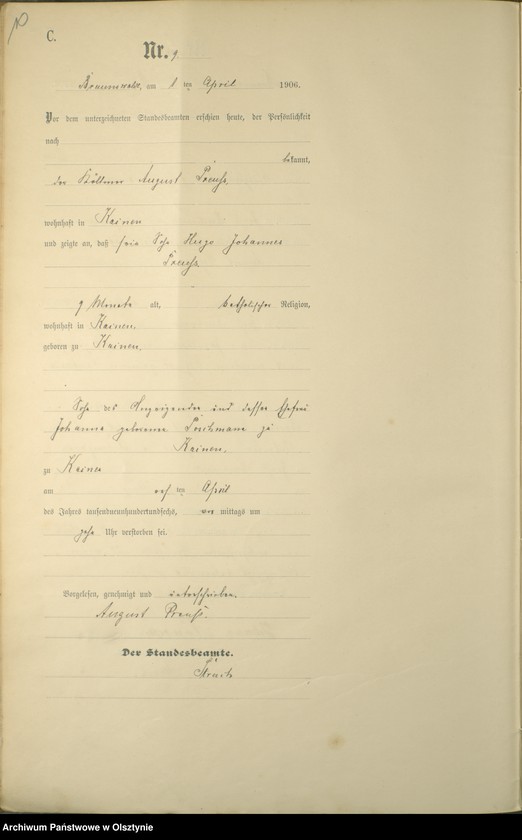 C.
Nr. 9.
Braunswalde, am 8 ten April 1906.
Vor dem unterzeichneten Standesbeamten erschien heute, der Persönlichkeit
nach
bekannt,
der Köllmer August Preuß,
wohnhaft in Kainen
und zeigte an, daß sein Sohn Hugo Johannes
Preuß,
9 Monate alt, katholischer Religion,
wohnhaft in Kainen,
geboren zu Kainen,
Sohn des Anzeigenden und dessen Ehefrau
Johanna geborenen zu
Kainen,
zu Kainen
am ten April
des Jahres tausendneunhundertundsechs, vor mittags um
zehn Uhr verstorben sei.
Vorgelesen, genehmigt und unterschrieben.
August Preuß.
Der Standesbeamte.